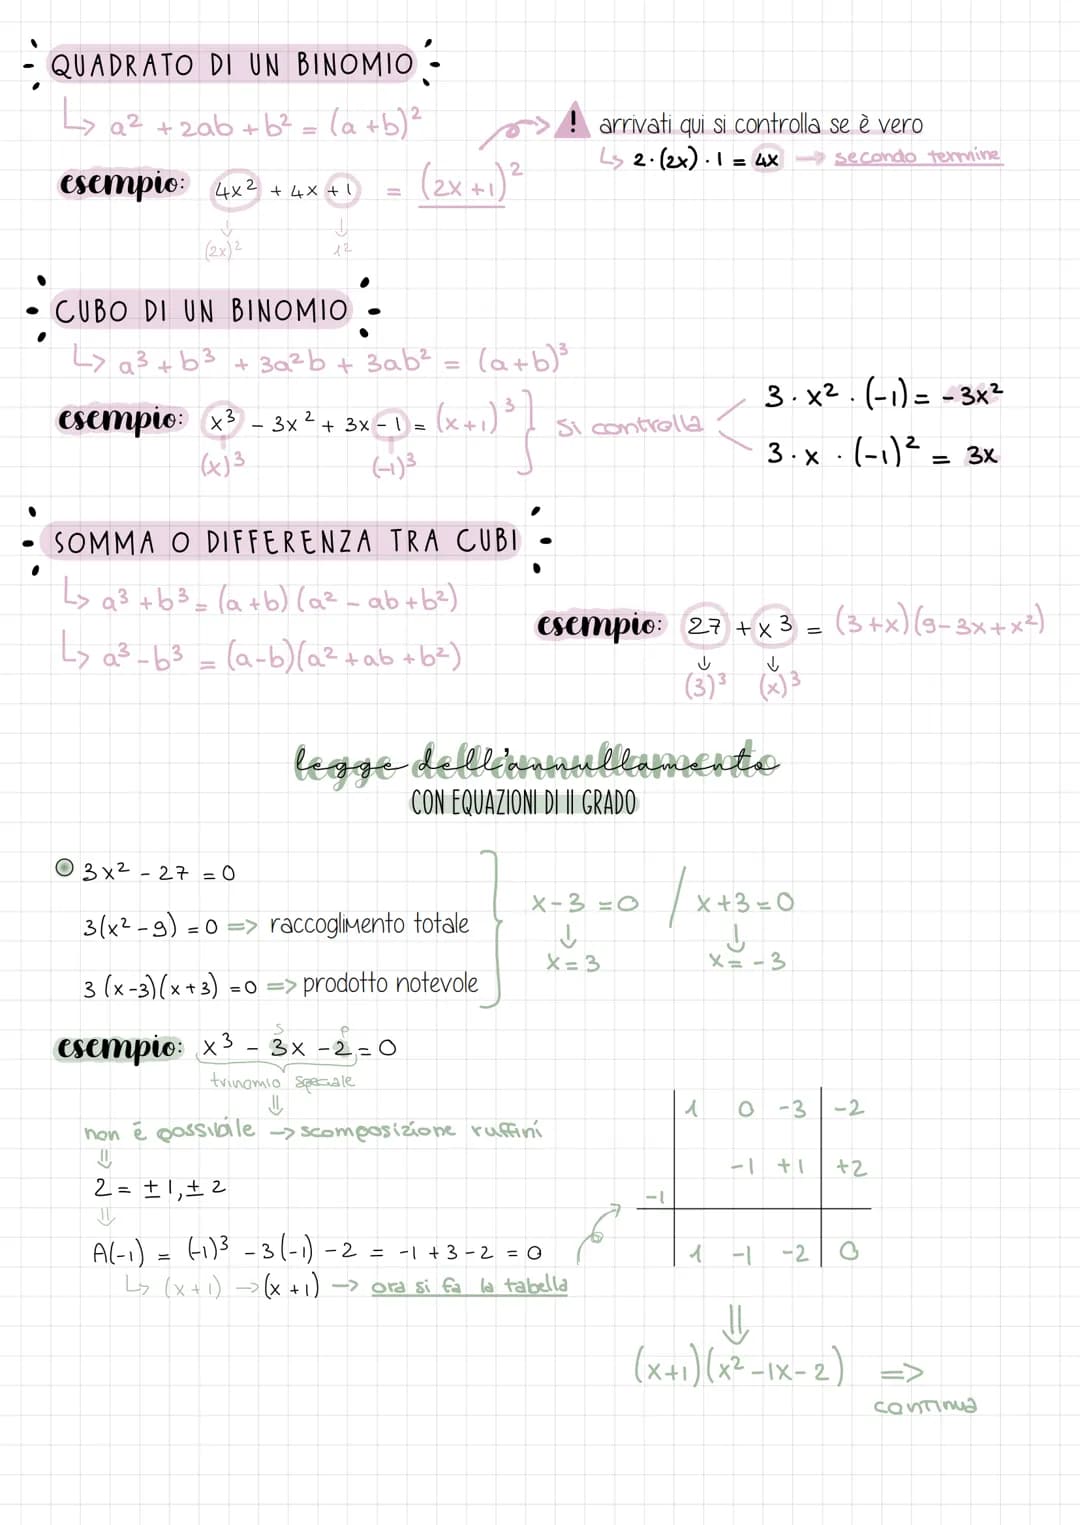 QUADRATO DI UN BINOMIO
↳ a² + 2ab + b² = (a + b)²
! arrivati qui si controlla se è vero
↳ 2·(2x)·1 = 4x → secondo termine
esempio: 4x² + 4x + 1 = (2x + 1)²
(2x)² 1²
CUBO DI UN BINOMIO
↳ a³ + b³ + 3a²b + 3ab² = (a + b)³
esempio: x³ - 3x² + 3x - 1 = (x + 1)³ } si controlla
(x)³ (-1)³
3 · x² · (-1) = - 3x²
3 · x · (-1)² = 3x
SOMMA O DIFFERENZA TRA CUBI
↳ a³ + b³ = (a + b)(a² - ab + b²)
↳ a³ - b³ = (a - b)(a² + ab + b²)
esempio: 27 + x³ = (3 + x)(9 - 3x + x²)
(3)³ (x)³
legge dell'annullamento
CON EQUAZIONI DI II GRADO
3x² - 27 = 0
3(x² - 9) = 0 => raccoglimento totale
3(x - 3)(x + 3) = 0 => prodotto notevole
x - 3 = 0 / x + 3 = 0
x = 3 x = - 3
s p
esempio: x³ - 3x - 2 = 0
trinomio speciale
non é possibile → scomposizione ruffini
2 = ± 1, ± 2
A(-1) = (-1)³ - 3(-1) - 2 = -1 + 3 - 2 = 0
↳ (x + 1) → (x + 1) → ora si fa la tabella
1 0 -3 -2
-1 +1 +2
-1
1 -1 -2 0
(x+1)(x² - 1x - 2) =>
continua